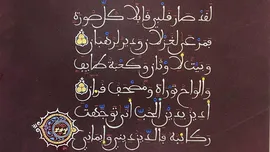 لقد صار قلبي قابلا كل صورة
فمرعى لغزلان ودير لرهبان
وبيت لاوثان وكعبة طايف
والواح توراة ومصحف قران
ادين بدين الحب انى توجهت
ركائبه فالدين ديني وايماني